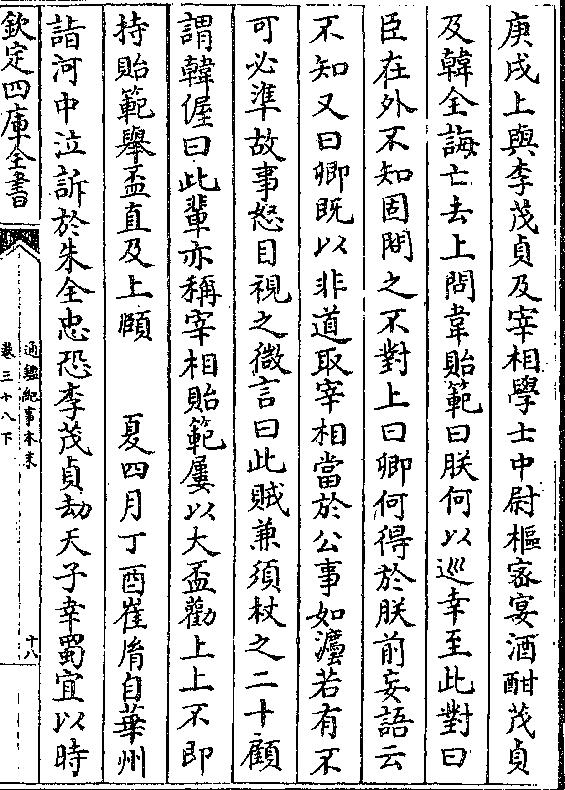 庚戌上與李茂貞及宰相學士中尉樞宻宴酒酣茂貞
及韓全誨亡去上問韋貽範曰朕何以巡幸至此對曰
臣在外不知固問之不對上曰卿何得於朕前妄語云
不知又曰卿既以非道取宰相當於公事如法若有不
可必準故事怒目視之微言曰此賊兼須杖之二十顧
謂韓偓曰此輩亦稱宰相貽範屢以大盃勸上上不即
持貽範舉盃直及上頤　夏四月丁酉崔𦙍自華州
詣河中泣訴於朱全忠恐李茂貞劫天子幸蜀宜以時
欽定四庫全書
通鑑紀事本末
卷三十八下
十八